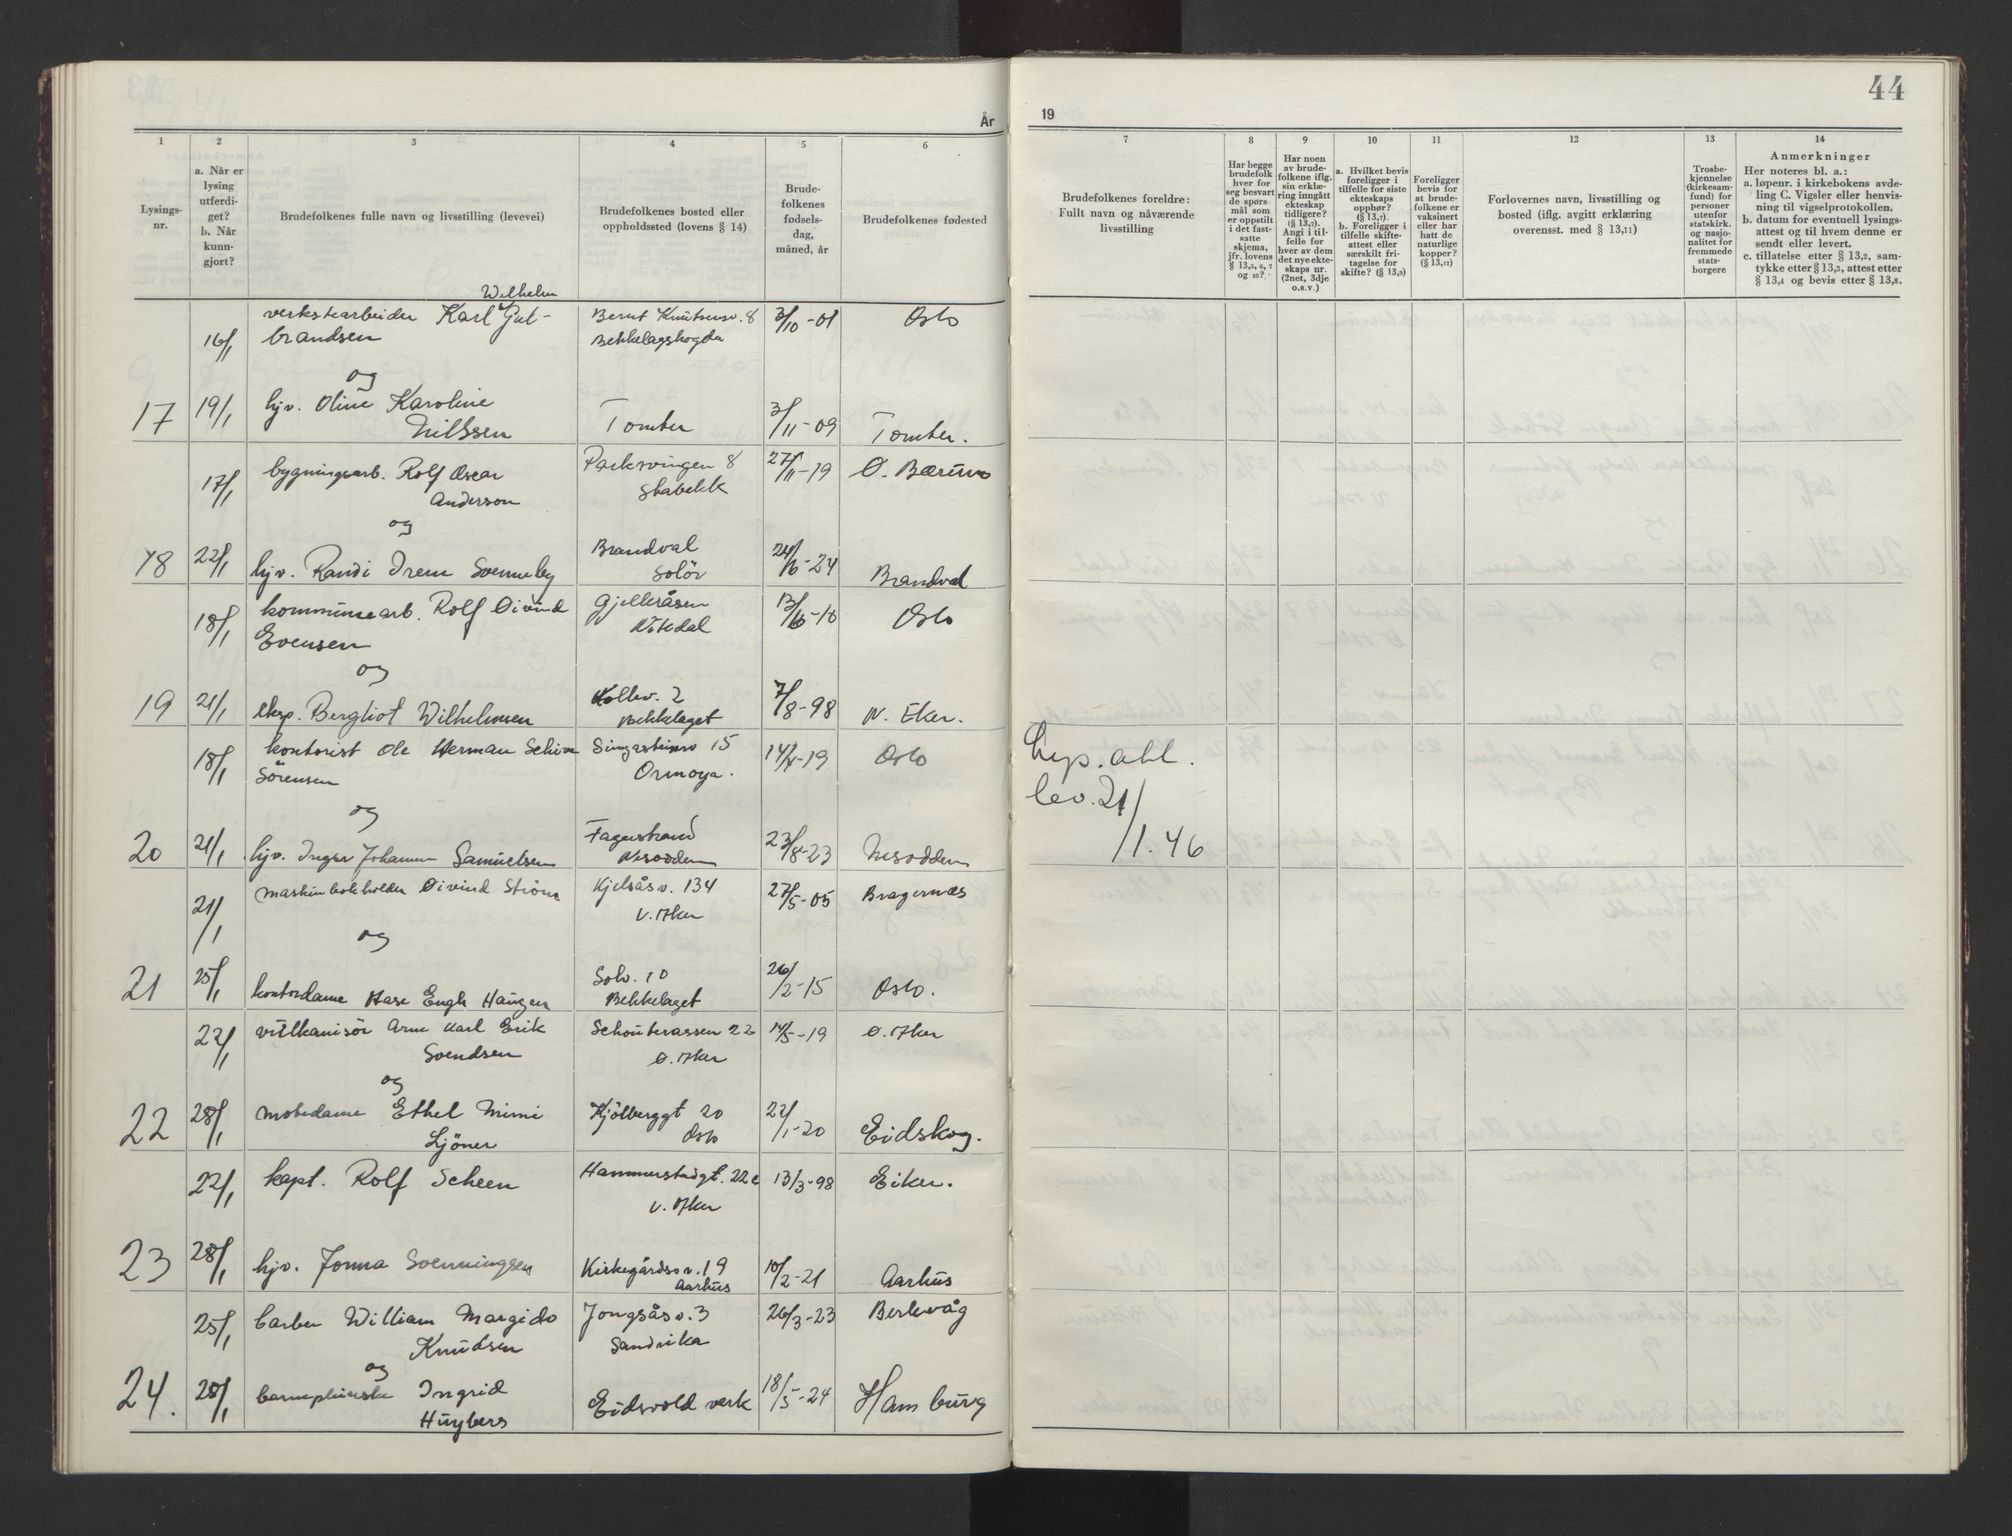 44
År
19
1
2
3
4
5
6
7
8
9
10
11
12
13
14
Lysings-
nr.
a. Når er
lysing
utferdi-
get?
b. Når
kunn-
gjort?
Brudefolkenes fulle navn og livsstilling (levevei)
Brudefolkenes bosted eller
oppholdssted (lovens § 14)
Brude-
folkenes
fødsels-
dag,
måned, år
Brudefolkenes fødested
Brudefolkenes foreldre:
Fullt navn og nåværende
livsstilling
Har begge
brudefolk
hver for
seg besvart
de spørs-
mål som
er oppstilt
i det fast-
satte
skjema,
jfr. lovens
§ 13,5, 6, 7
og 10?
Har noen
av brude-
folkene iflg.
sin erklæ-
ring inngått
ekteskap
tidligere?
(§ 13,7).
Angi i til-
felle for
hver av dem
det nye ekte-
skaps nr.
(2net, 3dje
o.s.v.)
a. Hvilket bevis
foreligger i
tilfelle for siste
ekteskaps
opphør?
(§ 13,7)
b. Foreligger i
tilfelle skifte-
attest eller
særskilt fri-
tagelse for
skifte? (§ 13,9)
Foreligger
bevis for
at brude-
folkene er
vaksinert
eller har
hatt de
naturlige
kopper?
(§ 13,12)
Forlovernes navn, livsstilling og
bosted (iflg. avgitt erklæring
overensst. med § 13,11)
Trosbe-
kjennelse
(kirkesam-
fund) for
personer
utenfor
statskirk.
og nasjo-
nalitet for
fremmede
stats-
borgere
Anmerkninger
Her noteres bl. a.:
a. løpenr. i kirkebokens avde-
ling C. Vigsler eller henvis-
ning til vigselprotokollen.
b. datum for eventuell lysings-
attest og til hvem denne er
sendt eller levert.
c. tillatelse etter § 13,2, sam-
tykke etter § 13,3, attest etter
§ 13,4 og bevis etter § 13,8.
Wilhelm
16/1 verkstearbeider Karl Gul- Bernt Knudsensv. 8 3/10-01 Oslo
brandsen Bekkelagshøgda
og
17 19/1 hjv. Oline Karoline Tomter 3/11-09 Tomter.
Nilssen
17/1 bygningsarb. Rolf Oscar Parksvingen 8 27/11-19 Ø. Bærum
Anderson Stabekk
og
18 22/1 hjv. Randi Irene Svenneby Brandval 24/6-24 Brandval
Solör
18/1 kommunearb. Rolf Öivind Gjelleråsen Oslo
Evensen Nitedal
og
19 21/1 eksp. Bergliot Wilhelmsen Kollv. 2 7/8-98 N. Eker.
Bekkelaget
18/1 kontorist Ole Herman Oslo
Sörensen Ormöya.
15
og
20 21/1 hjv. Inger Johanne Samuelsen Fagerstrand 23/8-23 Nesodden
Nesodden
21/1 maskinbokholder Öivind Ström Kjelsåsv. 134 27/5-05 Bragernæs
V. Aker
og
21 25/1 kontordame Aase Engh Haugen Solv. 10 26/2-15 Oslo.
Bekkelaget
22/1 vulkanisör Arne Karl Erik Schouterassen 22 14/5-19 Ø. Aker
Svendsen Ø. Aker
og
22 28/1 motedame Ethel Mimi Kjölberggt 20 22/1-20 Eidskog.
Ljöner Oslo
22/1 kapt. Rolf Scheen Hammerstadgt. 22c 13/3-98 Eiker.
V. Aker
23 28/1 hjv. Jonna Svenningsen Kirkegårdsv. 19 10/2-21 Aarhus
Aarhus
25/1 barber William Margido Jongsåsv. 3 26/3-23 Berlevåg
Knudsen Sandvika
og
24. 28/1 barnepleierske Ingrid Eidsvold verk 18/5-24 Hamburg
Huybers
Lysn. att.
lev. 21/1.46